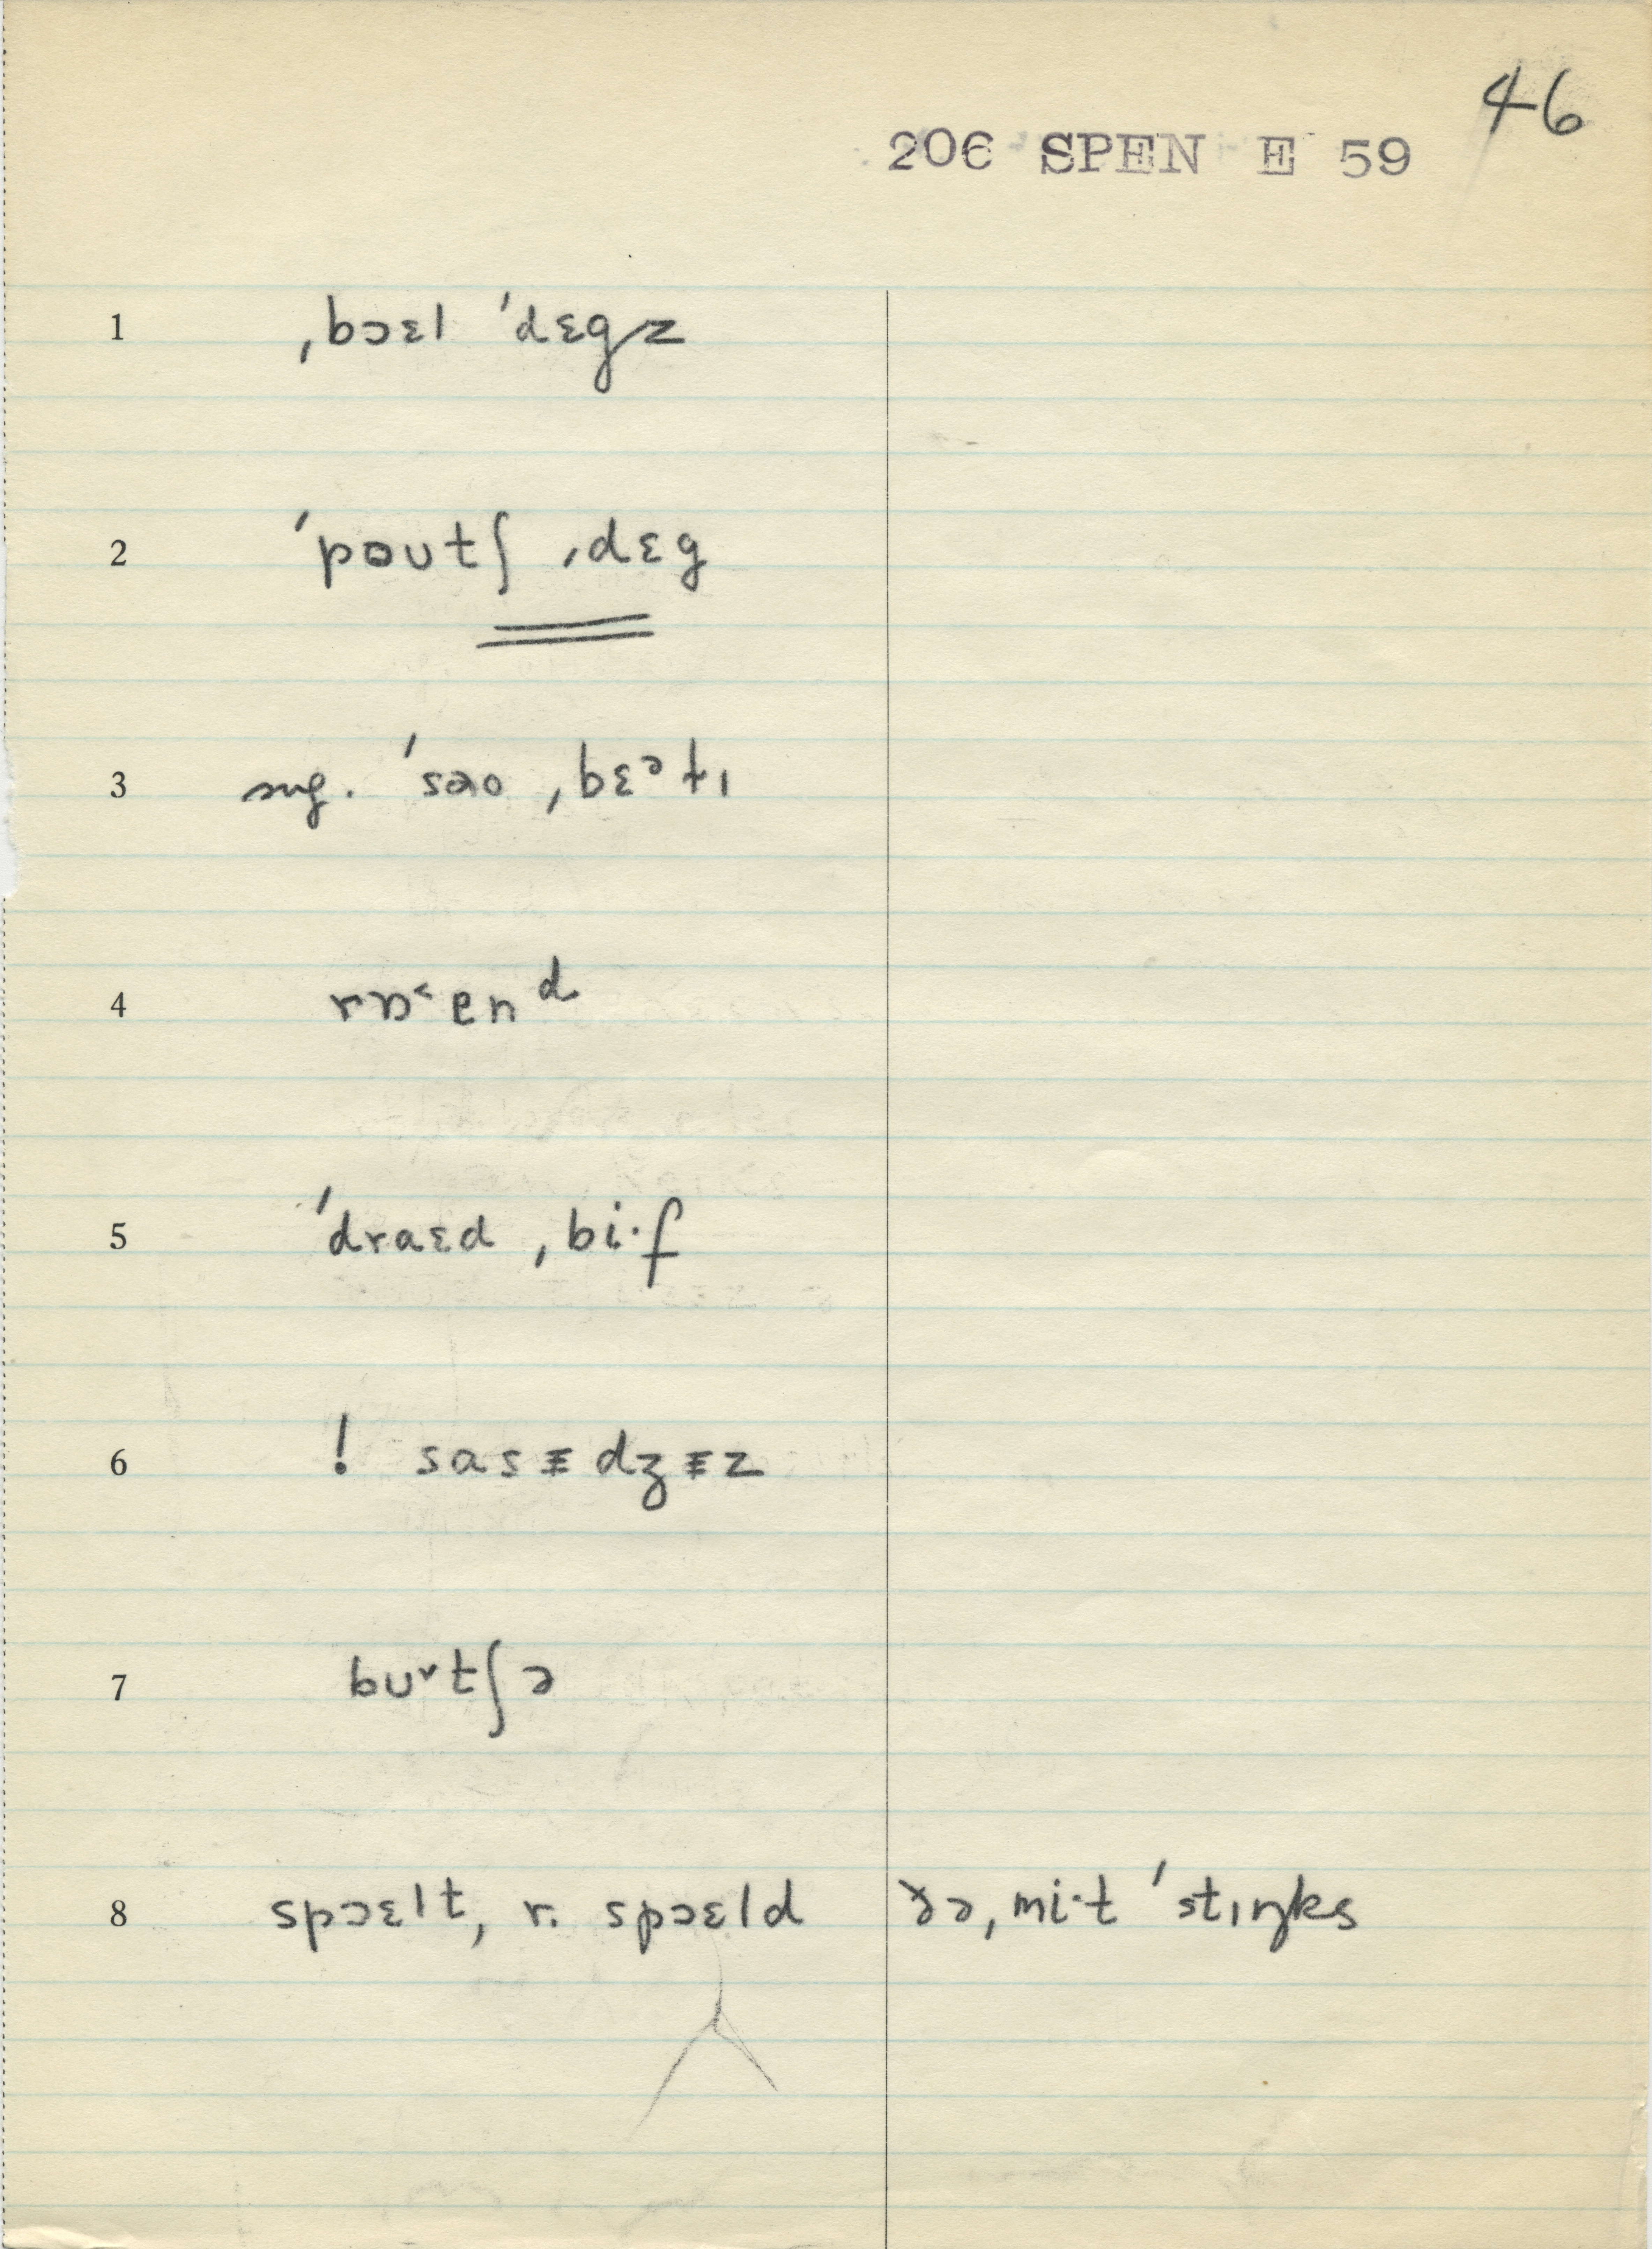 46
206 SPEN E 59
1 ˌbɔɛl ˈdɛgz
2 ˈpoutʃ ˌdɛg
3 sug. ˈsɑo ˌbɛᵊtɪ
4 rɒ˂enᵈ
5 ˈdraɛd ˌbi·f
6 ! sasᵻdʒᵻz
7 buʳtʃə
8 spɔɛlt, r. spɔɛld ðə ˌmi·t ˈstɪŋks